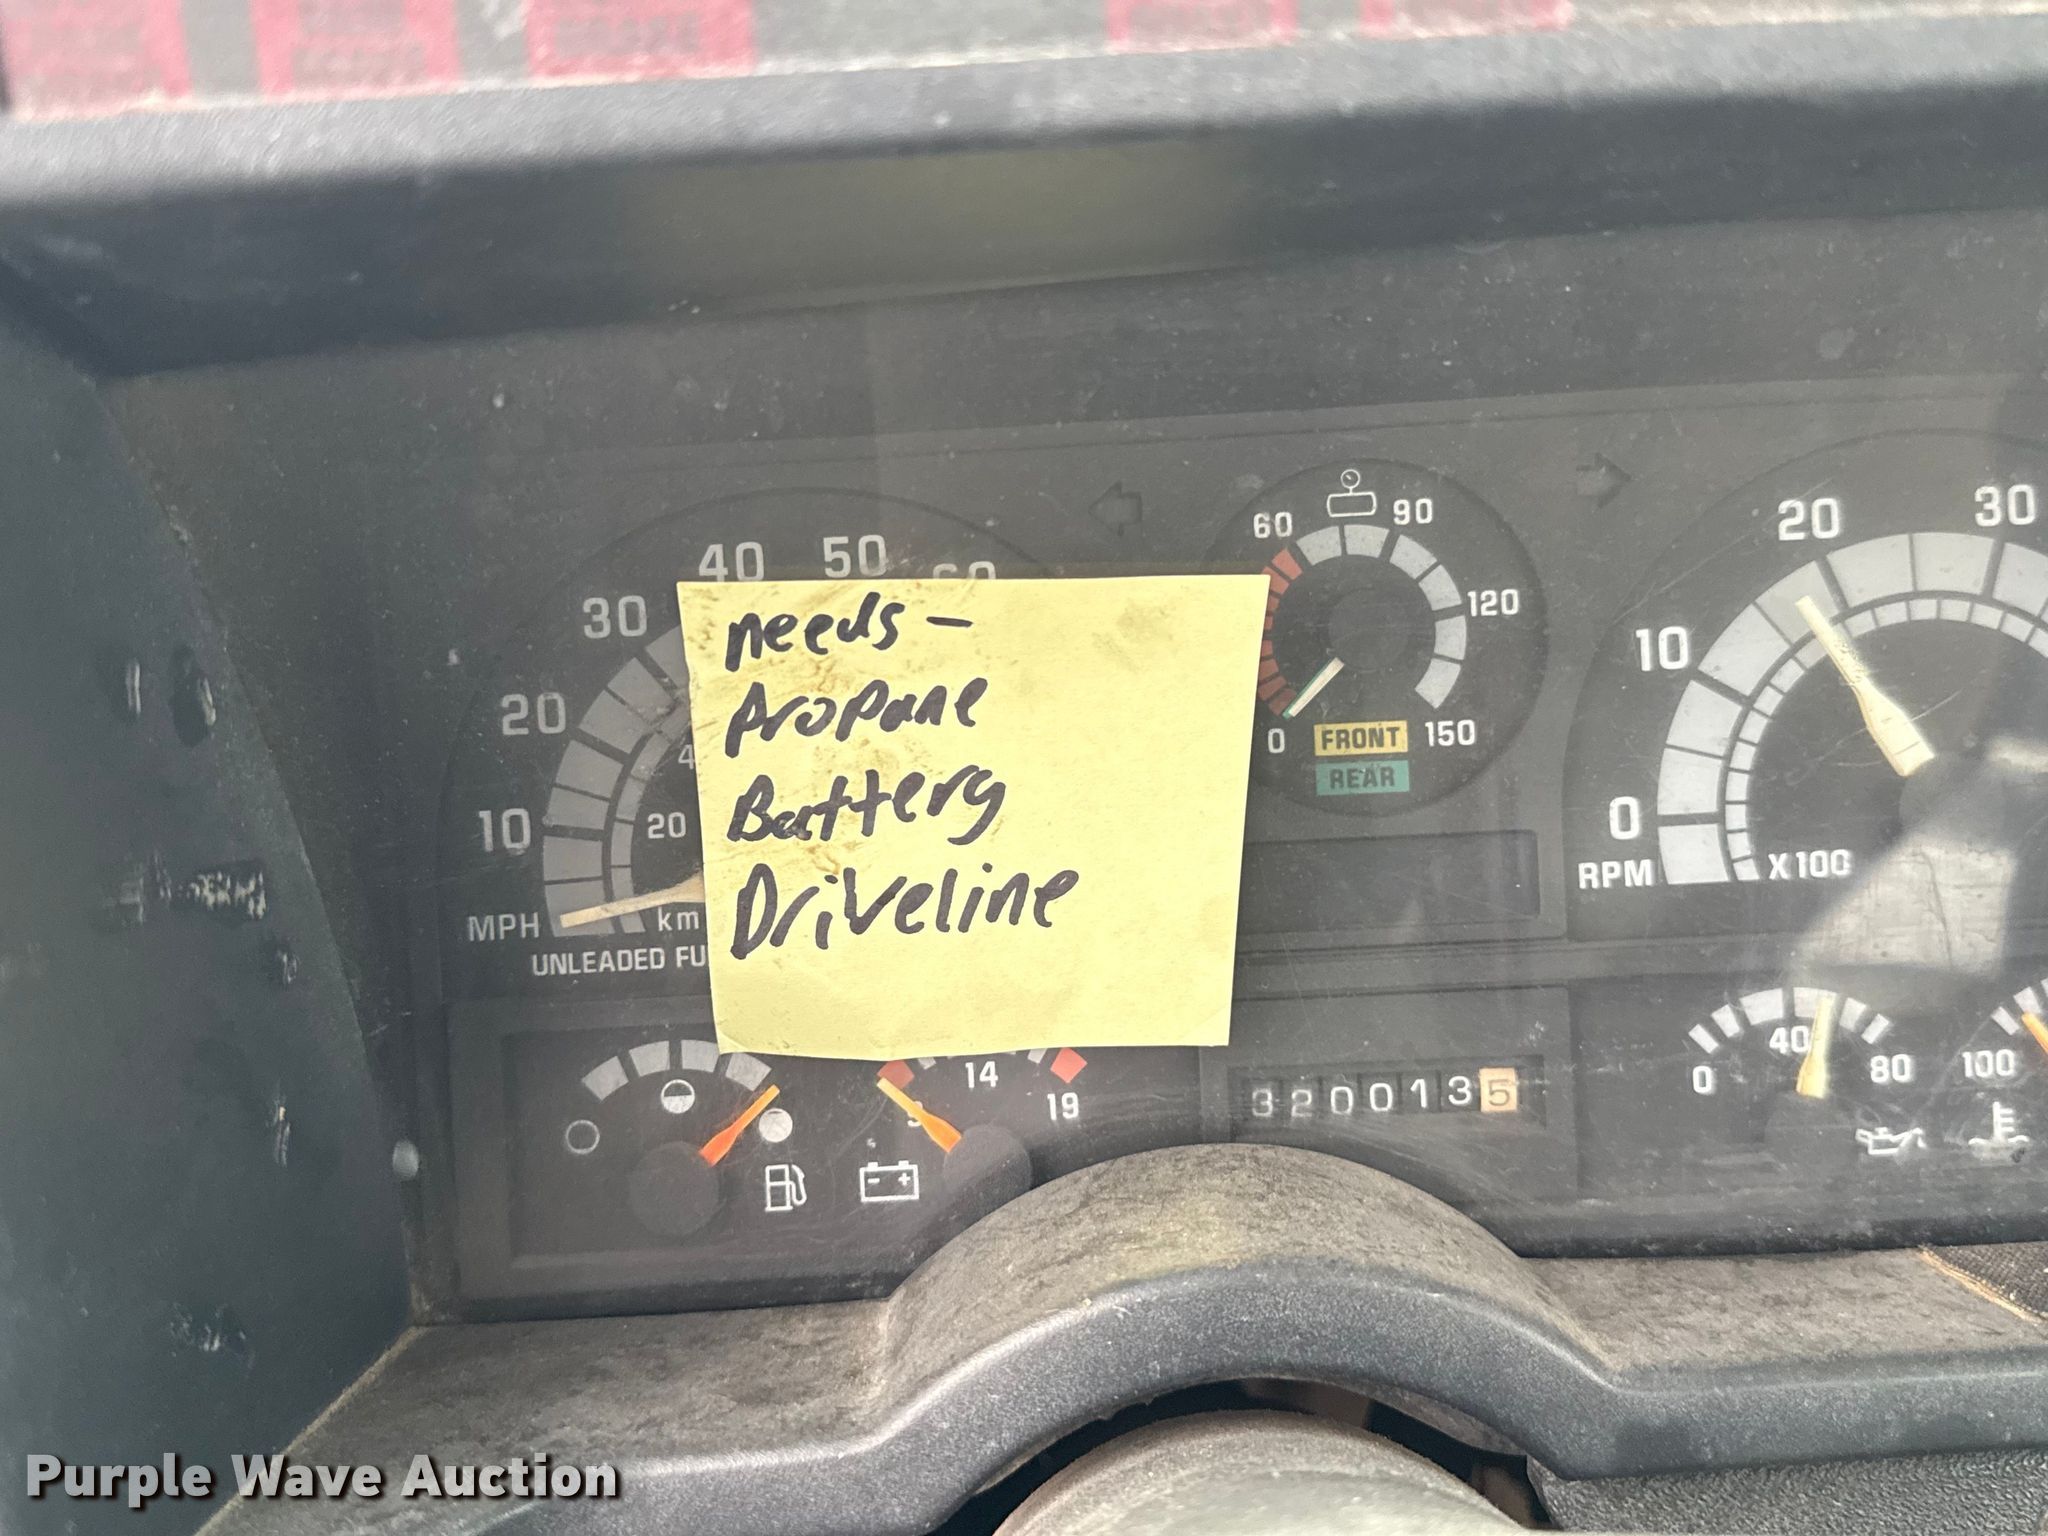 40 50 60
30
20
10
MPH
4
20
km
UNLEADED FU
needs -
Propane
Battery
Driveline
60 90
120
0 150
FRONT
REAR
20 30
10
0
RPM X100
9 14 19
3200135
0 40 80
100
Purple Wave Auction